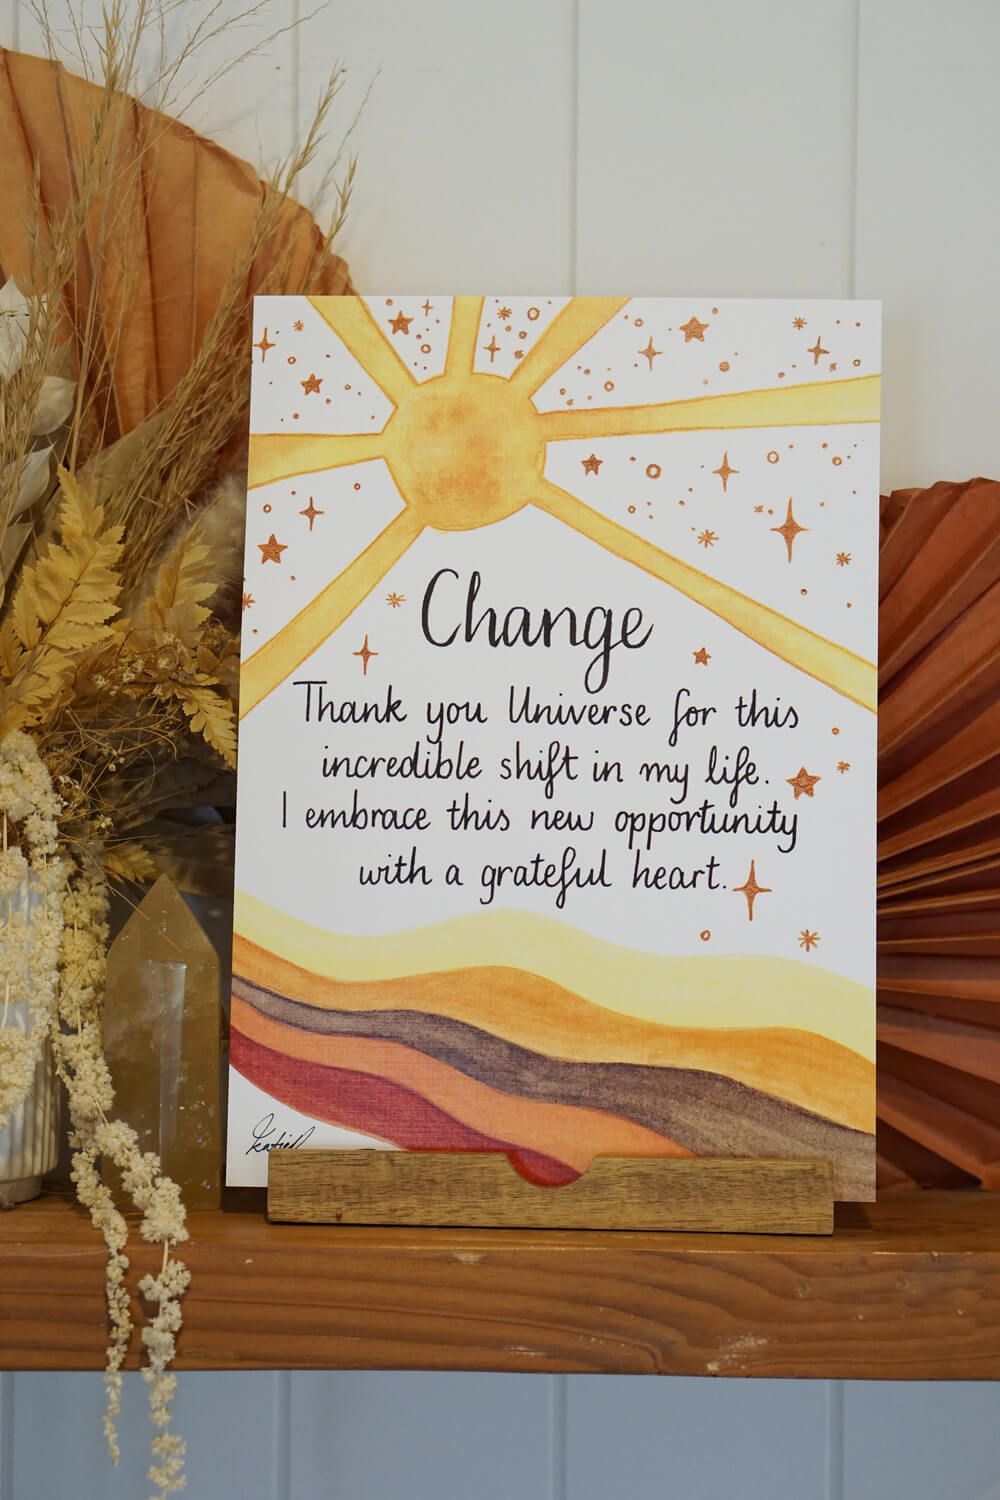 Change
Thank you Universe for this
incredible shift in my life.
I embrace this new opportunity
with a grateful heart.